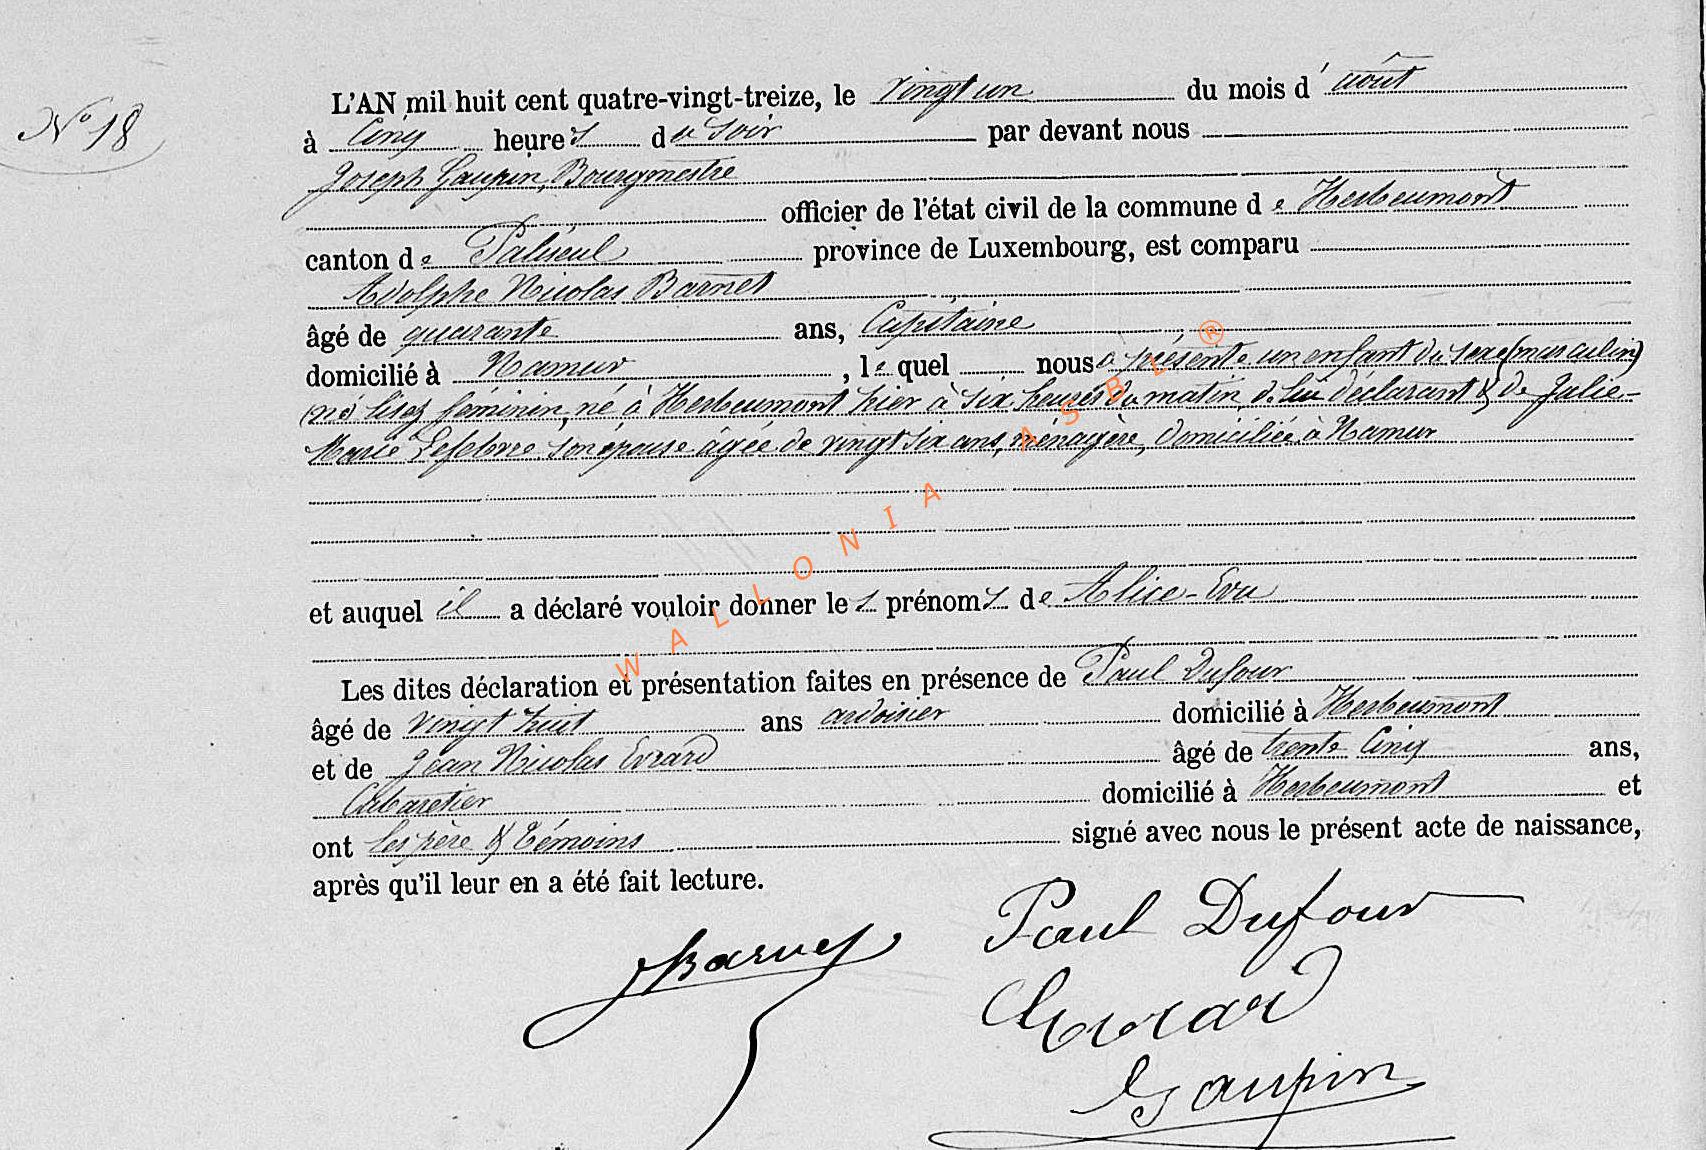 N° 18
L'AN mil huit cent quatre-vingt-treize, le vingt un du mois d'août
à cinq heures du soir par devant nous
Joseph Gaupin, Bourgmestre
officier de l'état civil de la commune de Herbeumont
canton de Paliseul province de Luxembourg, est comparu
Adolphe Nicolas Barnet
âgé de quarante ans, Capitaine
domicilié à Namur, lequel nous a présenté un enfant du sexe (masculin)
(né lisez féminin, né à Herbeumont hier à six heures du matin, de lui déclarant & de Julie-
Marie Lefebvre son épouse âgée de vingt six ans, ménagère, domiciliée à Namur
et auquel il a déclaré vouloir donner les prénoms de Alice-Eva
Les dites déclaration et présentation faites en présence de Paul Dufour
âgé de vingt huit ans ardoisier domicilié à Herbeumont
et de Jean Nicolas Evrard âgé de trente cinq ans,
Cabaretier domicilié à Herbeumont et
ont les père & témoins signé avec nous le présent acte de naissance,
après qu'il leur en a été fait lecture.
Paul Dufour
Barnet
Evrard
Gaupin
WALLONIA ASBL ®